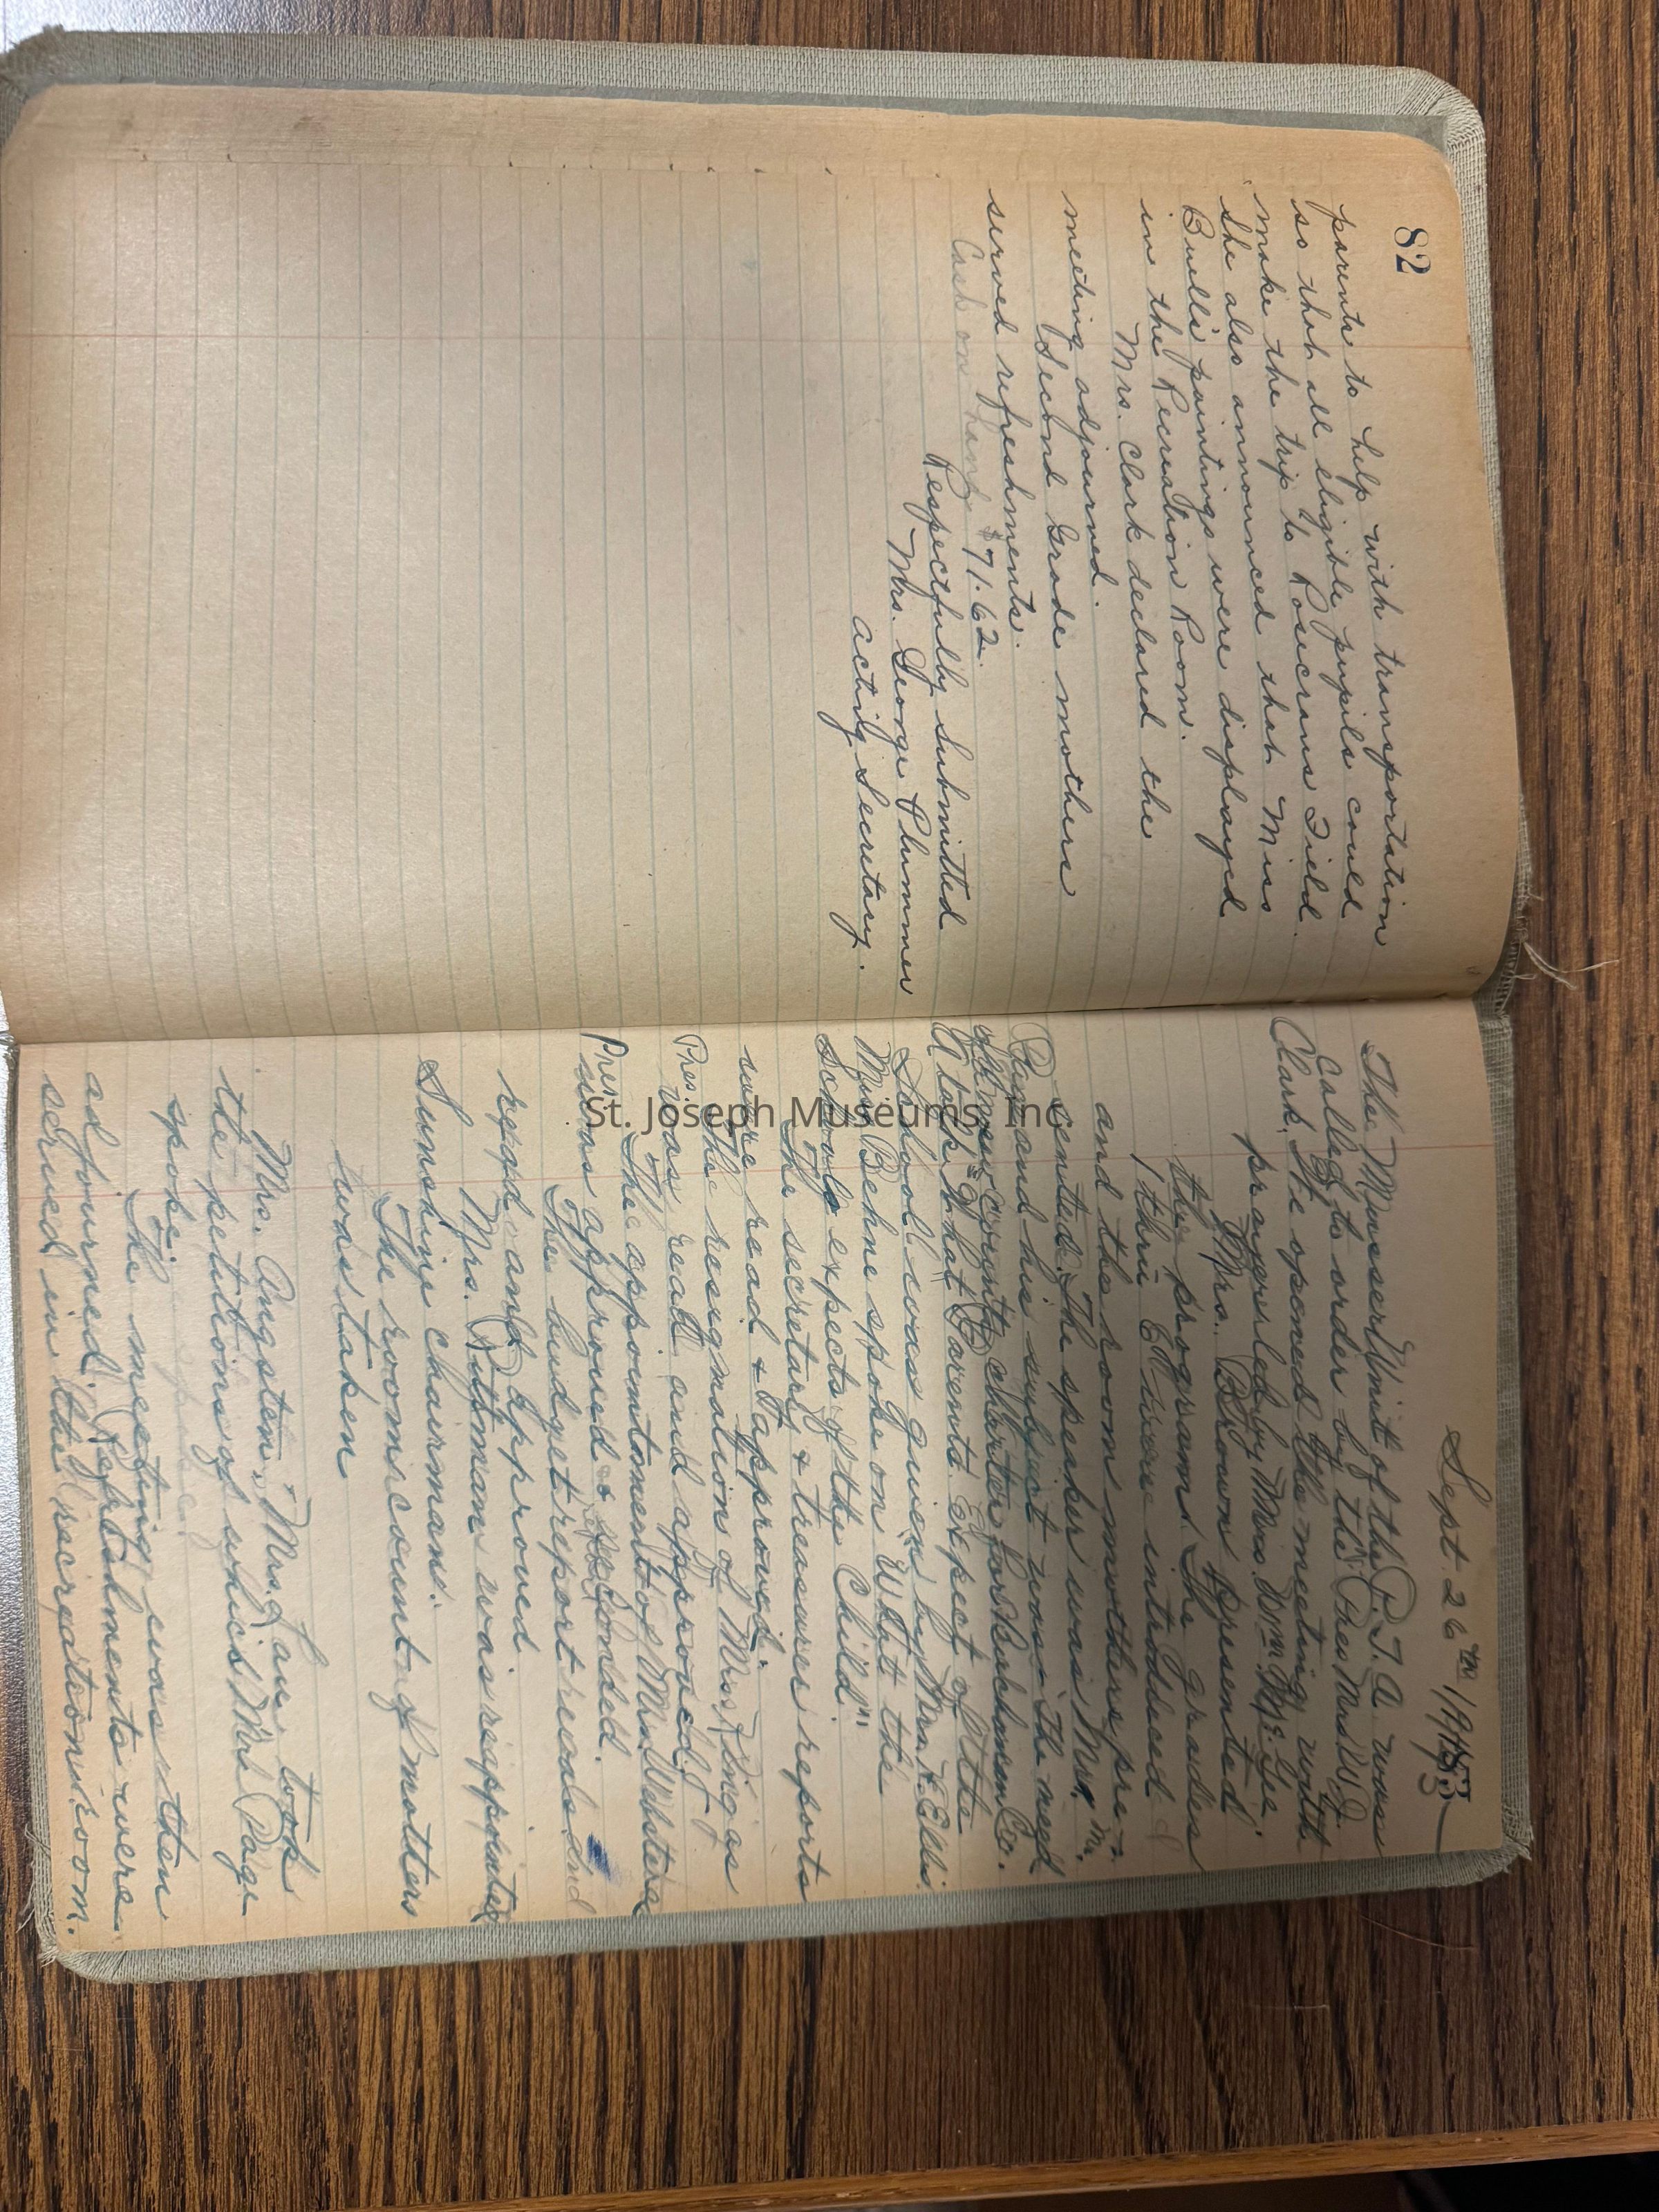 82
parents to help with transportation
so that all eligible pupils could
make the trip to Rosecrans Field.
She also announced that Miss
Buell's paintings were displayed
in the Recreation Room.
Mrs. Clark declared the
meeting adjourned.
Second Grade mothers
served refreshments.
Cash on hand $71.62.
Respectfully submitted
Mrs. George Plummer
Acting Secretary.
Sept. 26th 1945
The Musser Unit of the P.T.A. was
called to order by the Pres Mrs W.J.
Clark. He opened the meeting with
prayer led by Mrs. Wm McGee.
Mrs. Brown presented
the program. The grades
1 thru were introduced
and the room mothers pre-
sented. The speaker was Mr.
and his subject was The need
of new county charter for
A talk "What Parents Expect of the
School" was given by Mrs. H. Ellis.
Miss Behne spoke on "What the
Schools expects of the Child".
The secretary & treasurer reports
were read & approved.
The resignation of Mrs. King as
Pres was read and approved.
The appointment of Mrs. Webster as
Pres. was approved & seconded.
The budget report was
read and approved
Mrs. Rithman was reappointed
Sunshine chairman.
The room count of mothers
was taken
Mrs. Angsten, Mrs. Lau took
the petitions of which Mrs Page
spoke.
The meeting was then
adjourned. Refreshments were
served in the recreation room.
St. Joseph Museums, Inc.